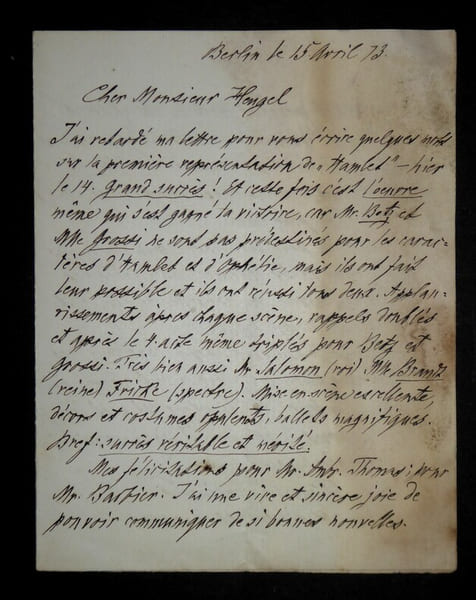 Berlin le 15 Avril 73.
Cher Monsieur Hengel
J'ai retardé ma lettre pour vous écrire quelques mots
sur la première représentation de „Hamlet" – hier
le 14. Grand succès! Et cette fois c'est l'oeuvre
même qui s'est gagné la victoire, car Mr. Betz et
Mlle Grossi ne sont pas prédestinés pour les carac-
tères d'Hamlet et d'Ophélie, mais ils ont fait
leur possible et ils ont réussi tous deux. Applau-
dissements après chaque scène, rappels doublés
et après le 4. acte même triplés pour Betz et
Grossi. Très bien aussi Mr Salomon (roi) Mlle Brandt
(reine) Fricke (spectre). Mise en scène excellente
décors et costumes opulents, ballets magnifiques.
Bref: succès véritable et mérité.
Mes félicitations pour Mr. Amb. Thomas; pour
Mr. Barbier. J'ai une vive et sincère joie de
pouvoir communiquer de si bonnes nouvelles.